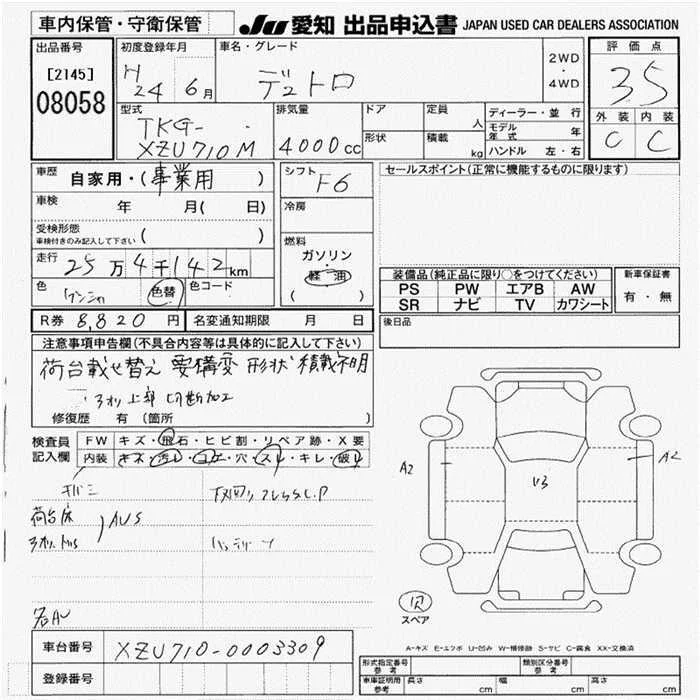 車内保管・守衛保管
JU 愛知 出品申込書 JAPAN USED CAR DEALERS ASSOCIATION
出品番号
[2145]
08058
初度登録年月
H 24 6月
車名・グレード
デュトロ
2WD
・
4WD
評価点
3.5
外装 内装
C C
型式
TKG-
XZU710M
排気量
4000cc
ドア
形状
定員 人
積載 kg
ディーラー・並行
モデル年式 年
ハンドル 左・右
車歴
自家用・(事業用 )
車検 年 月( 日)
受検形態
車検付きのみ記入して下さい ( )
走行 25万4千142km
色 色替 色コード
シフト
F6
冷房
燃料
ガソリン
・
軽油
( )
セールスポイント(正常に機能するものに限ります)
装備品(純正品に限り○をつけてください)
PS PW エアB AW
SR ナビ TV カワシート
新車保証書
有・無
R券 8,820円 名変通知期限 月 日
後日品
注意事項申告欄(不具合内容等は具体的に記入して下さい)
荷台載せ替え 要構変 形状 積載不明
上部 切断加工
修復歴 有 (箇所 )
検査員記入欄
FW キズ・飛石・ヒビ割・リペア跡・X要
内装 キズ・汚レ・コゲ・穴・スレ・キレ・破レ
下回リ
荷台床
AUS
バッテリー
A2
A2
U3
スペア
A-キズ E-エクボ U-凹み W-補修跡 S-サビ C-腐食 XX-交換済
車台番号 XZU710-0003309
登録番号
形式指定番号 参考
類別区分番号 参考
車庫証明用 参考 長さ cm 幅 cm 高さ cm